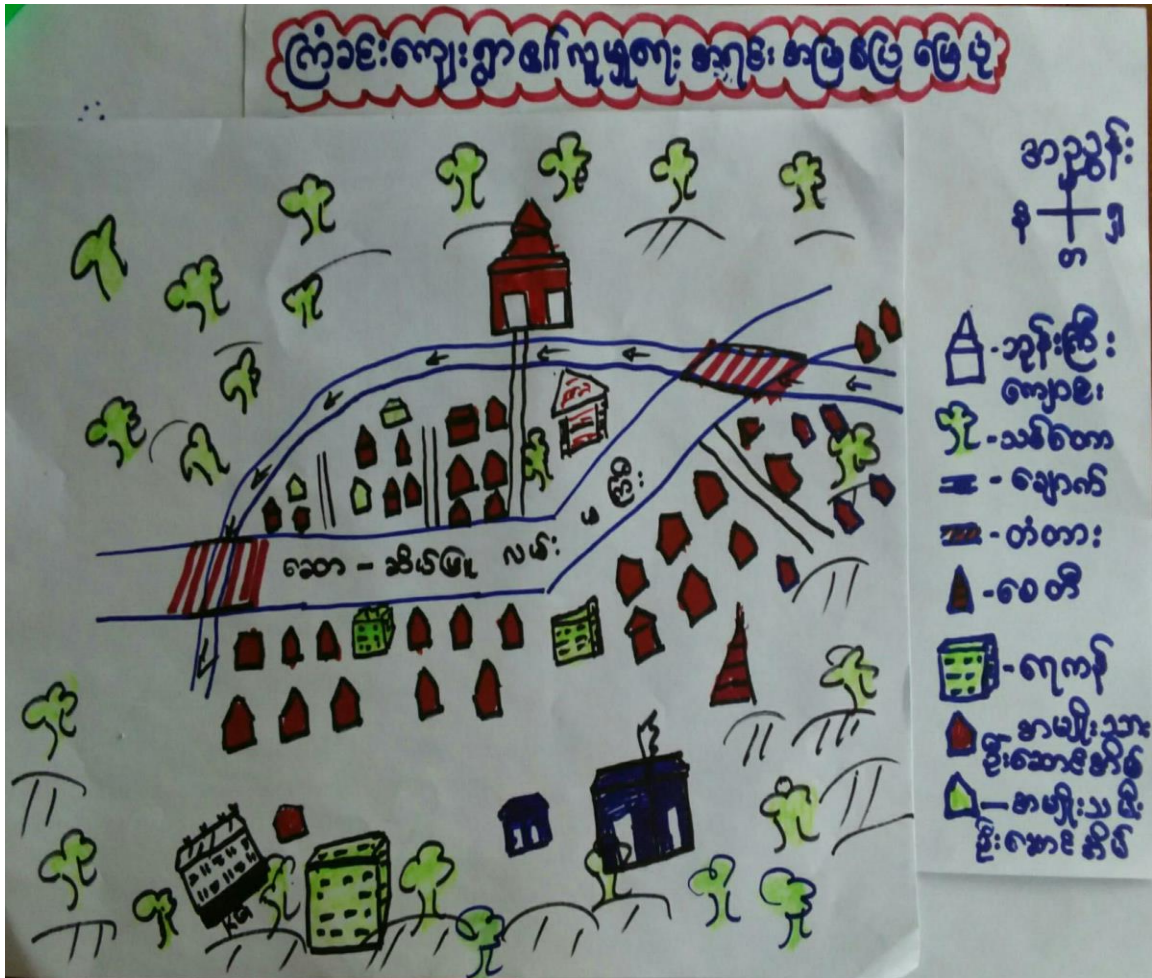 ကြံခင်းကျေးရွာ၏လူမှုရေး အရင်းအမြစ်ပြ မြေပုံ
အညွှန်း
န
ရှ
တ
- ဘုန်းကြီး
ကျောင်း
- သစ်တော
- ချောက်
- တံတား
- စေတီ
- ရေကန်
- အမျိုးသား
ဦးဆောင်အိမ်
- အမျိုးသမီး
ဦးဆောင်အိမ်
ဆော - ဆိပ်ဖြူ လမ်း
KG